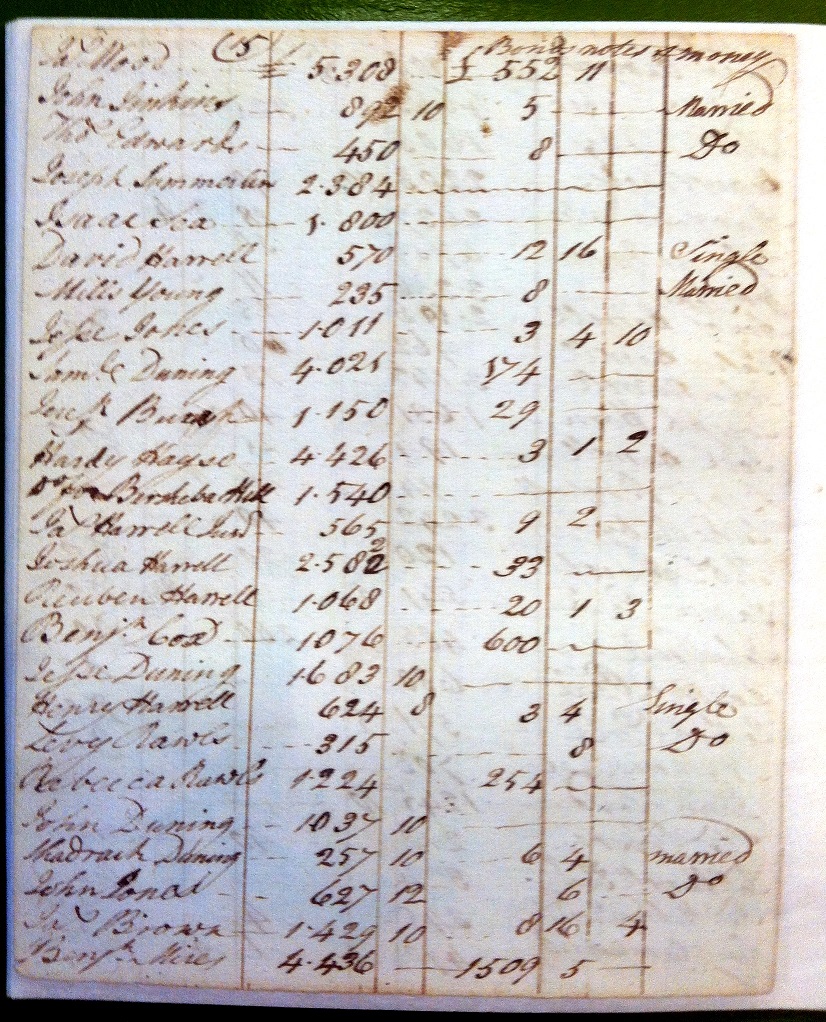 (5) Bonds notes & money
Jas Wood 5.308 £ 552 11
John Jinkins 892 10 5 Married
Thos Edwards 450 8 Do
Joseph 2.384
Isaac 1.800
David Harrell 570 12 16 Single
Mills Young 235 8 Married
Jesse Jones 1.011 3 4 10
Saml Duning 4.021 174
1.150 29
Hardy Hayse 4.426 3 1 2
Do for Bersheba Hill 1.540
Jas Harrell Jurr 565 9 2
Joshua Harrell 2.582 2 33
Reuben Harrell 1.068 20 1 3
Benjn Cox 1076 600
Jesse Duning 1.683 10
Henry Harrell 624 8 3 4 Single
Levy Rawls 315 8 Do
Rebecca Rawls 1.224 254
John Duning 1.037 10
Shadrach Duning 257 10 6 4 married
John 627 12 6 Do
Jas Brown 1.429 10 8 16 4
Benjn 4.436 1509 5